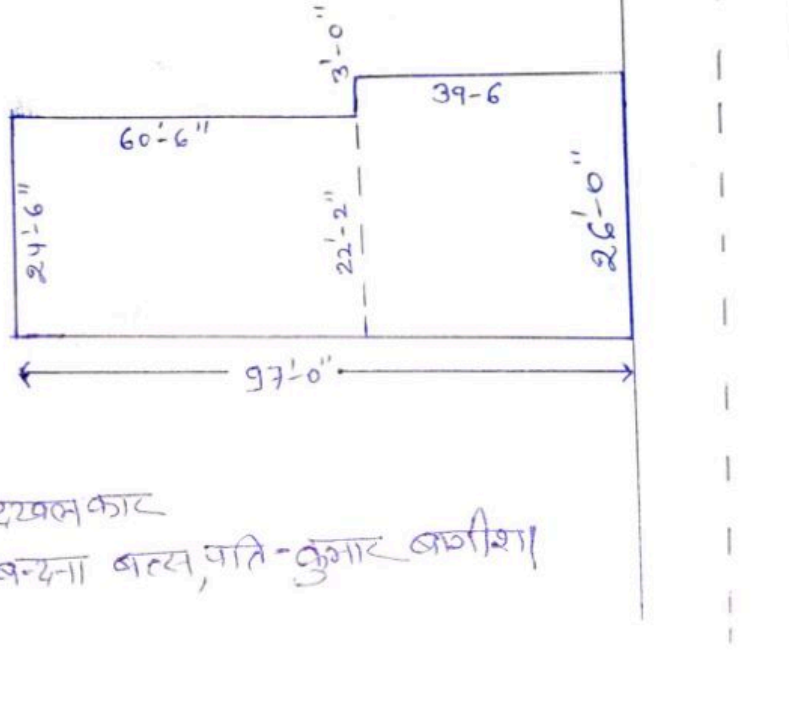 3'-0"
39-6
60'-6"
24'-6"
22'-2"
26'-0"
97'-0"
दखलकार
बन्दना बत्स, पति - कुमार बागीश।